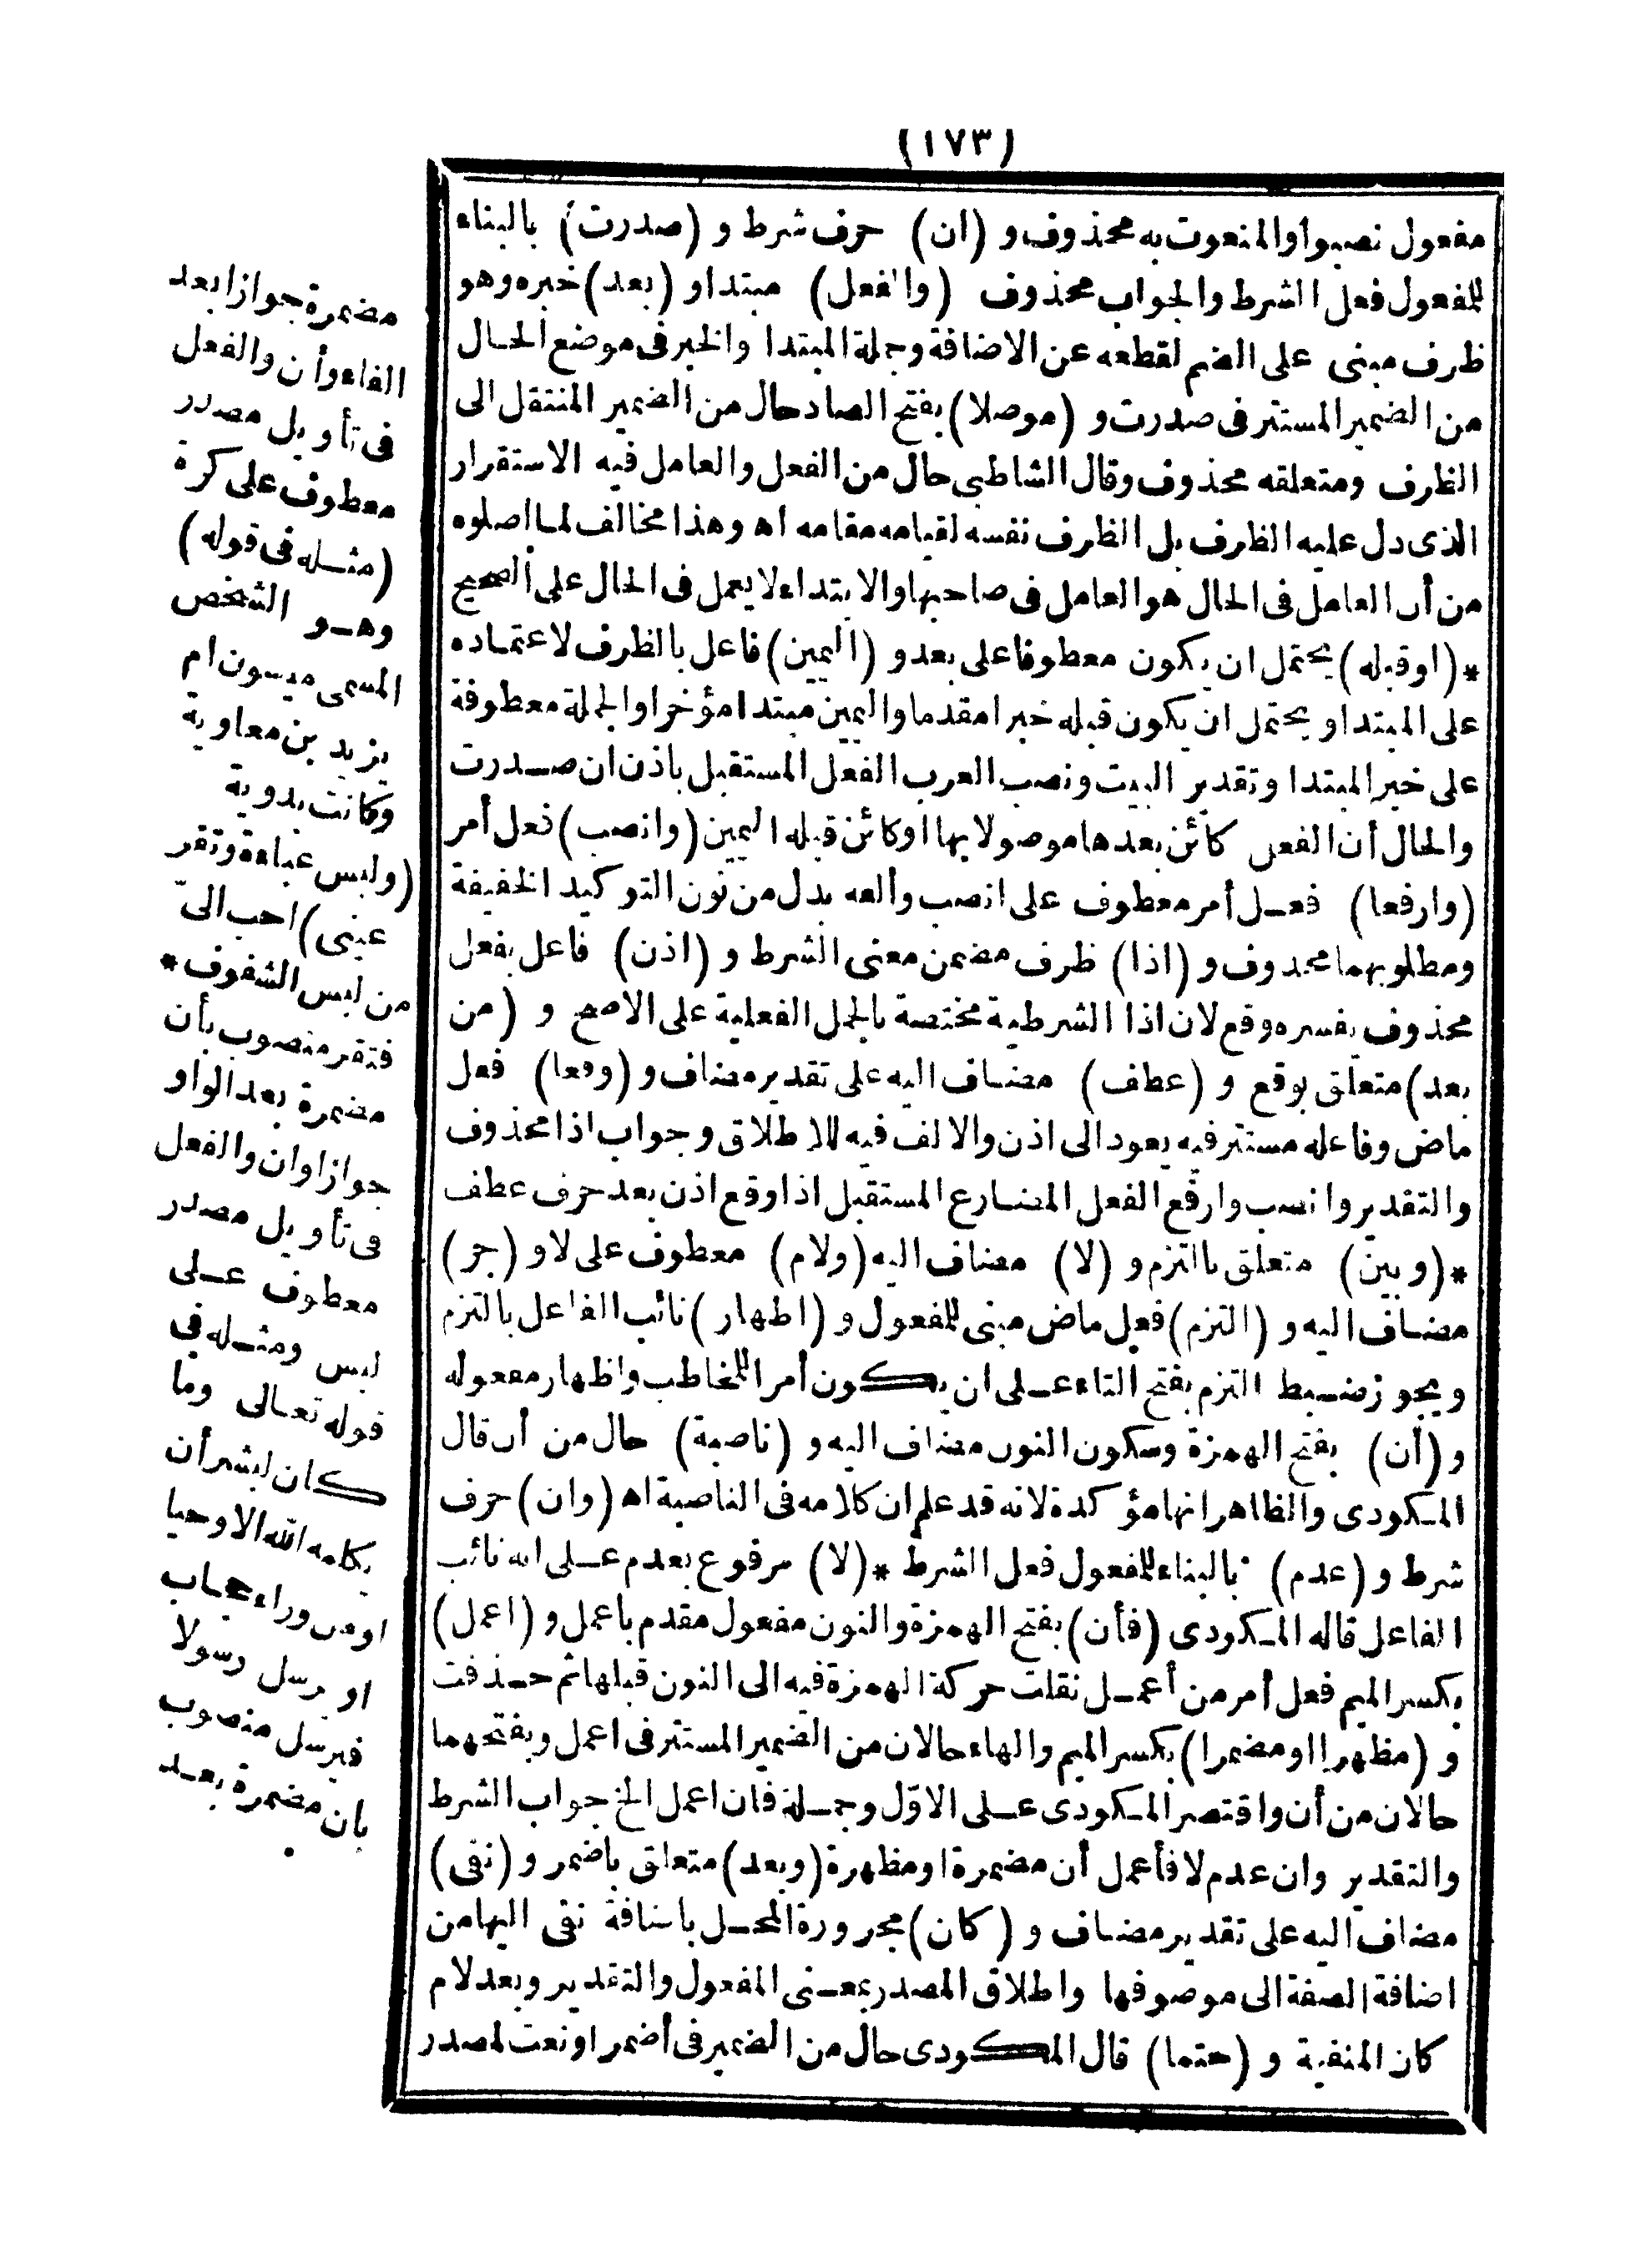 (١٧٣)
مفعول نصبوا والمنعوت به محذوف و (ان) حرف شرط و (صدرت) بالبناء
للمفعول فعل الشرط والجواب محذوف (والفعل) مبتدا و (بعد) خبره وهو
ظرف مبنى على الضم لقطعه عن الاضافة وجملة المبتدا والخبر فى موضع الحال
من الضمير المستتر فى صدرت و (موصلا) بفتح الصاد حال من الضمير المنتقل الى
الظرف ومتعلقه محذوف وقال الشاطبى حال من الفعل والعامل فيه الاستقرار
الذى دل عليه الظرف بل الظرف نفسه لقيامه مقامه اه وهذا مخالف لما اصلوه
من أن العامل فى الحال هو العامل فى صاحبها والابتداء لا يعمل فى الحال على الصحيح
* (او قبله) يحتمل ان يكون معطوفا على بعد و (اليمين) فاعل بالظرف لاعتماده
على المبتدا ويحتمل ان يكون قبله خبرا مقدما واليمين مبتدا مؤخرا والجملة معطوفة
على خبر المبتدا وتقدير البيت ونصب العرب الفعل المستقبل باذن ان صـدرت
والحال أن الفعل كائن بعدها موصولا بها او كائن قبله اليمين (وانصب) فعل أمر
(وارفعا) فعـل أمر معطوف على انصب وألفه بدل من نون التوكيد الخفيفة
ومطلوبهما محذوف و (اذا) ظرف مضمن معنى الشرط و (اذن) فاعل بفعل
محذوف يفسره وقع لان اذا الشرطية مختصة بالجمل الفعلية على الاصح و (من
بعد) متعلق بوقع و (عطف) مضـاف اليه على تقدير مضاف و (وقعا) فعل
ماض وفاعله مستتر فيه يعود الى اذن والالف فيه للاطلاق وجواب اذا محذوف
والتقدير وانصب وارفع الفعل المضـارع المستقبل اذا وقع اذن بعد حرف عطف
* (وبين) متعلق بالتزم و (لا) مضاف اليه (ولام) معطوف على لا و (جر)
مضـاف اليه و (التزم) فعل ماض مبنى للمفعول و (اظهار) نائب الفاعل بالتزم
ويجوز ضـبط التزم بفتح التاء عـلى ان يكون أمرا للمخاطب واظهار مفعوله
و (أن) بفتح الهمزة وسكون النون مضاف اليه و (ناصبة) حال من أن قال
المـكودى والظاهر انها مؤكدة لانه قد علم ان كلامه فى الناصبة اه (وان) حرف
شرط و (عدم) بالبناء للمفعول فعل الشرط * (لا) مرفوع بعدم عـلى انه نائب
الفاعل قاله المـكودى (فأن) بفتح الهمزة والنون مفعول مقدم باعمل و (اعمل)
بكسر الميم فعل أمر من أعمـل نقلت حركة الهمزة فيه الى النون قبلها ثم حـذفت
و (مظهرا او مضمرا) بكسر الميم والهاء حالان من الضمير المستتر فى اعمل وبفتحهما
حالان من أن واقتصر المـكودى عـلى الاوّل وجمـلة فان اعمل الخ جواب الشرط
والتقدير وان عدم لا فأعمل أن مضمرة او مظهرة (وبعد) متعلق باضمر و (نفى)
مضاف اليه على تقدير مضـاف و (كان) مجرورة المحـل باضافة نفى اليها من
اضافة الصفة الى موصوفها واطلاق المصدر بمعـنى المفعول والتقدير وبعد لام
كان المنفية و (حتما) قال المكودى حال من الضمير فى أضمر او نعت لمصدر
مضمرة جوازا بعد
الفاء وأن والفعل
فى تأويل مصدر
معطوف على كرة
(مثـله فى قوله)
وهـو الشخص
المسمى ميسون ام
يزيد بن معاوية
وكانت بدوية
(ولبس عباءة وتقر
عينى) احب الىّ
من لبس الشفوف *
فتقر منصوب بأن
مضمرة بعد الواو
جوازا وان والفعل
فى تأويل مصدر
معطوف عـلى
لبس ومثـله فى
قوله تعـالى وما
كان لبشر أن
يكلمه الله الا وحيا
او من وراء حجاب
او يرسل رسولا
فيرسل منصوب
بان مضمرة بعـد